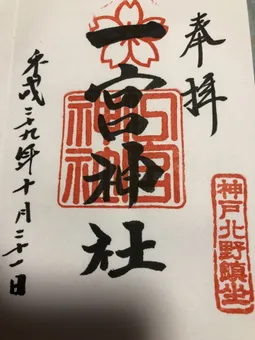 奉拝
一宮神社
平成二十九年十月二十一日
神戸北野鎮坐